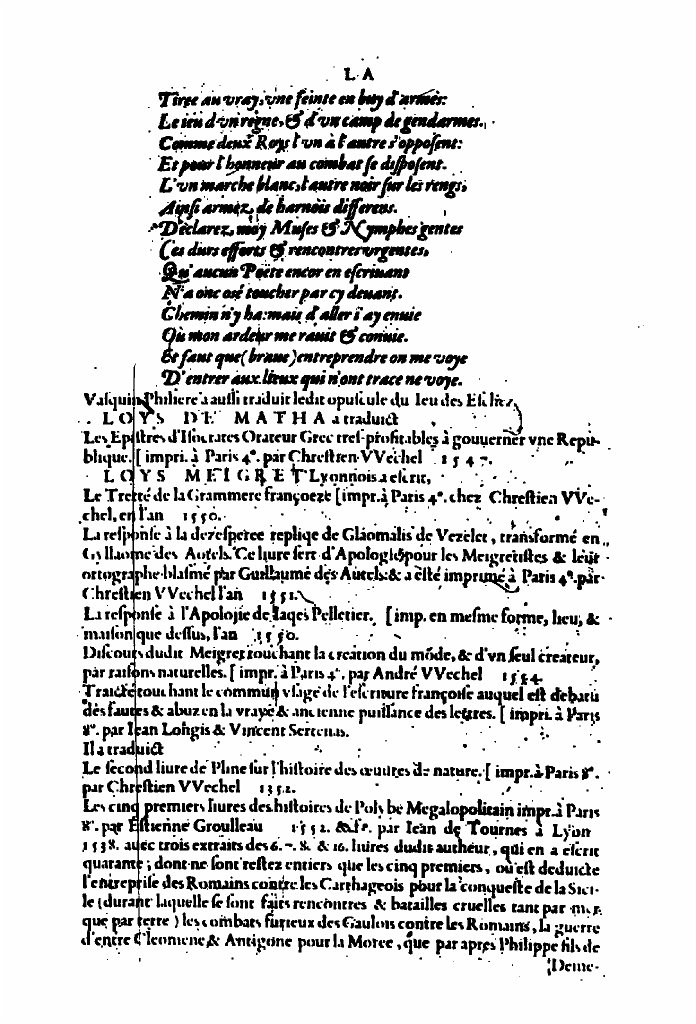 L A
Tiree au vray, vne feinte en buy d'armes:
Le ieu d'vn regne, & d'vn camp de gendarmes.
Comme deux Roys l'vn à l'autre s'opposent:
Et pour l'honneur au combat se disposent.
L'vn marche blanc, l'autre noir sur les rengs,
Ainsi armez, de harnois differens.
Declarez, moy Muses & Nymphes gentes
Ces durs efforts & rencontres vrgentes,
Qu'aucun Poëte encor en escriuant
N'a onc osé toucher par cy deuant.
Chemin n'y ha: mais d'aller i'ay enuie
Où mon ardeur me rauit & conuie.
Et faut que (braue) entreprendre on me voye
D'entrer aux lieux qui n'ont trace ne voye.
Vasquin Philiere a aussi traduit ledit opuscule du Ieu des Eschez,
LOYS DE MATHA a traduict
Les Epistres d'Isocrates Orateur Grec tres-profitables à gouuerner vne Repu-
blique. [impri. à Paris 4°. par Chrestien VVechel 1547.
LOYS MEIGRET Lyonnois a escrit,
Le Tretté de la Grammere françoeze [impr. à Paris 4°. chez Chrestien VVe-
chel, en l'an 1550.
La response à la dezesperee repliqe de Glaomalis de Vezelet, transformé en
Gyllaome des Autels. Ce liure sert d'Apologie pour les Meigretistes & leur
ortographe blasmé par Guillaume des Autels: & a esté imprimé à Paris 4°. par
Chrestien VVechel l'an 1551.
La response à l'Apolojie de Iaqes Pelletier. [imp. en mesme forme, lieu, &
maison que dessus, l'an 1550.
Discours dudit Meigret touchant la creation du mōde, & d'vn seul createur,
par raisons naturelles. [impr. à Paris 4°. par André VVechel 1554.
Traicté touchant le commun vsage de l'escriture françoise auquel est debatu
des fautes & abuz en la vraye & ancienne puissance des lettres. [impri. à Paris
8°. par Iean Longis & Vincent Sertenas.
Il a traduict
Le second liure de Pline sur l'histoire des œuures de nature. [impr. à Paris 8°.
par Chrestien VVechel 1552.
Les cinq premiers liures des histoires de Polybe Megalopolitain impr. à Paris
8°. par Estienne Groulleau 1552. & f°. par Iean de Tournes à Lyon
1558. auec trois extraits des 6. 7. 8. & 16. liures dudit autheur, qui en a escrit
quarante; dont ne sont restez entiers que les cinq premiers, où est deduicte
l'entreprise des Romains contre les Carthageois pour la conqueste de la Sici-
le (durant laquelle se sont faits rencontres & batailles cruelles tant par mer
que par terre) les combats furieux des Gaulois contre les Romains, la guerre
d'entre Cleomene & Antigone pour la Moree, que par apres Philippe fils de
Deme-